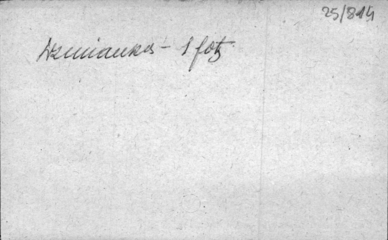 25/814
Wzmianka - 1 fot